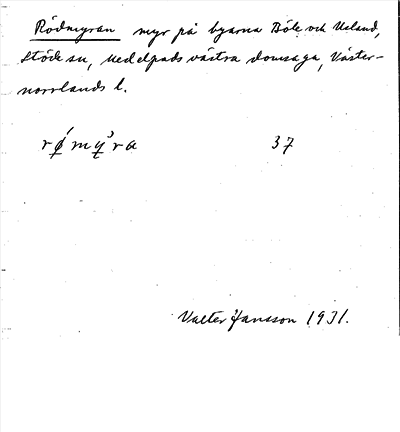 Rödmyran myr på byarna Böle och Usland,
Stöde sn, Medelpads västra domsaga, Väster-
norrlands l.
rǿmẙ̨ra 37
Valter Jansson 1931.